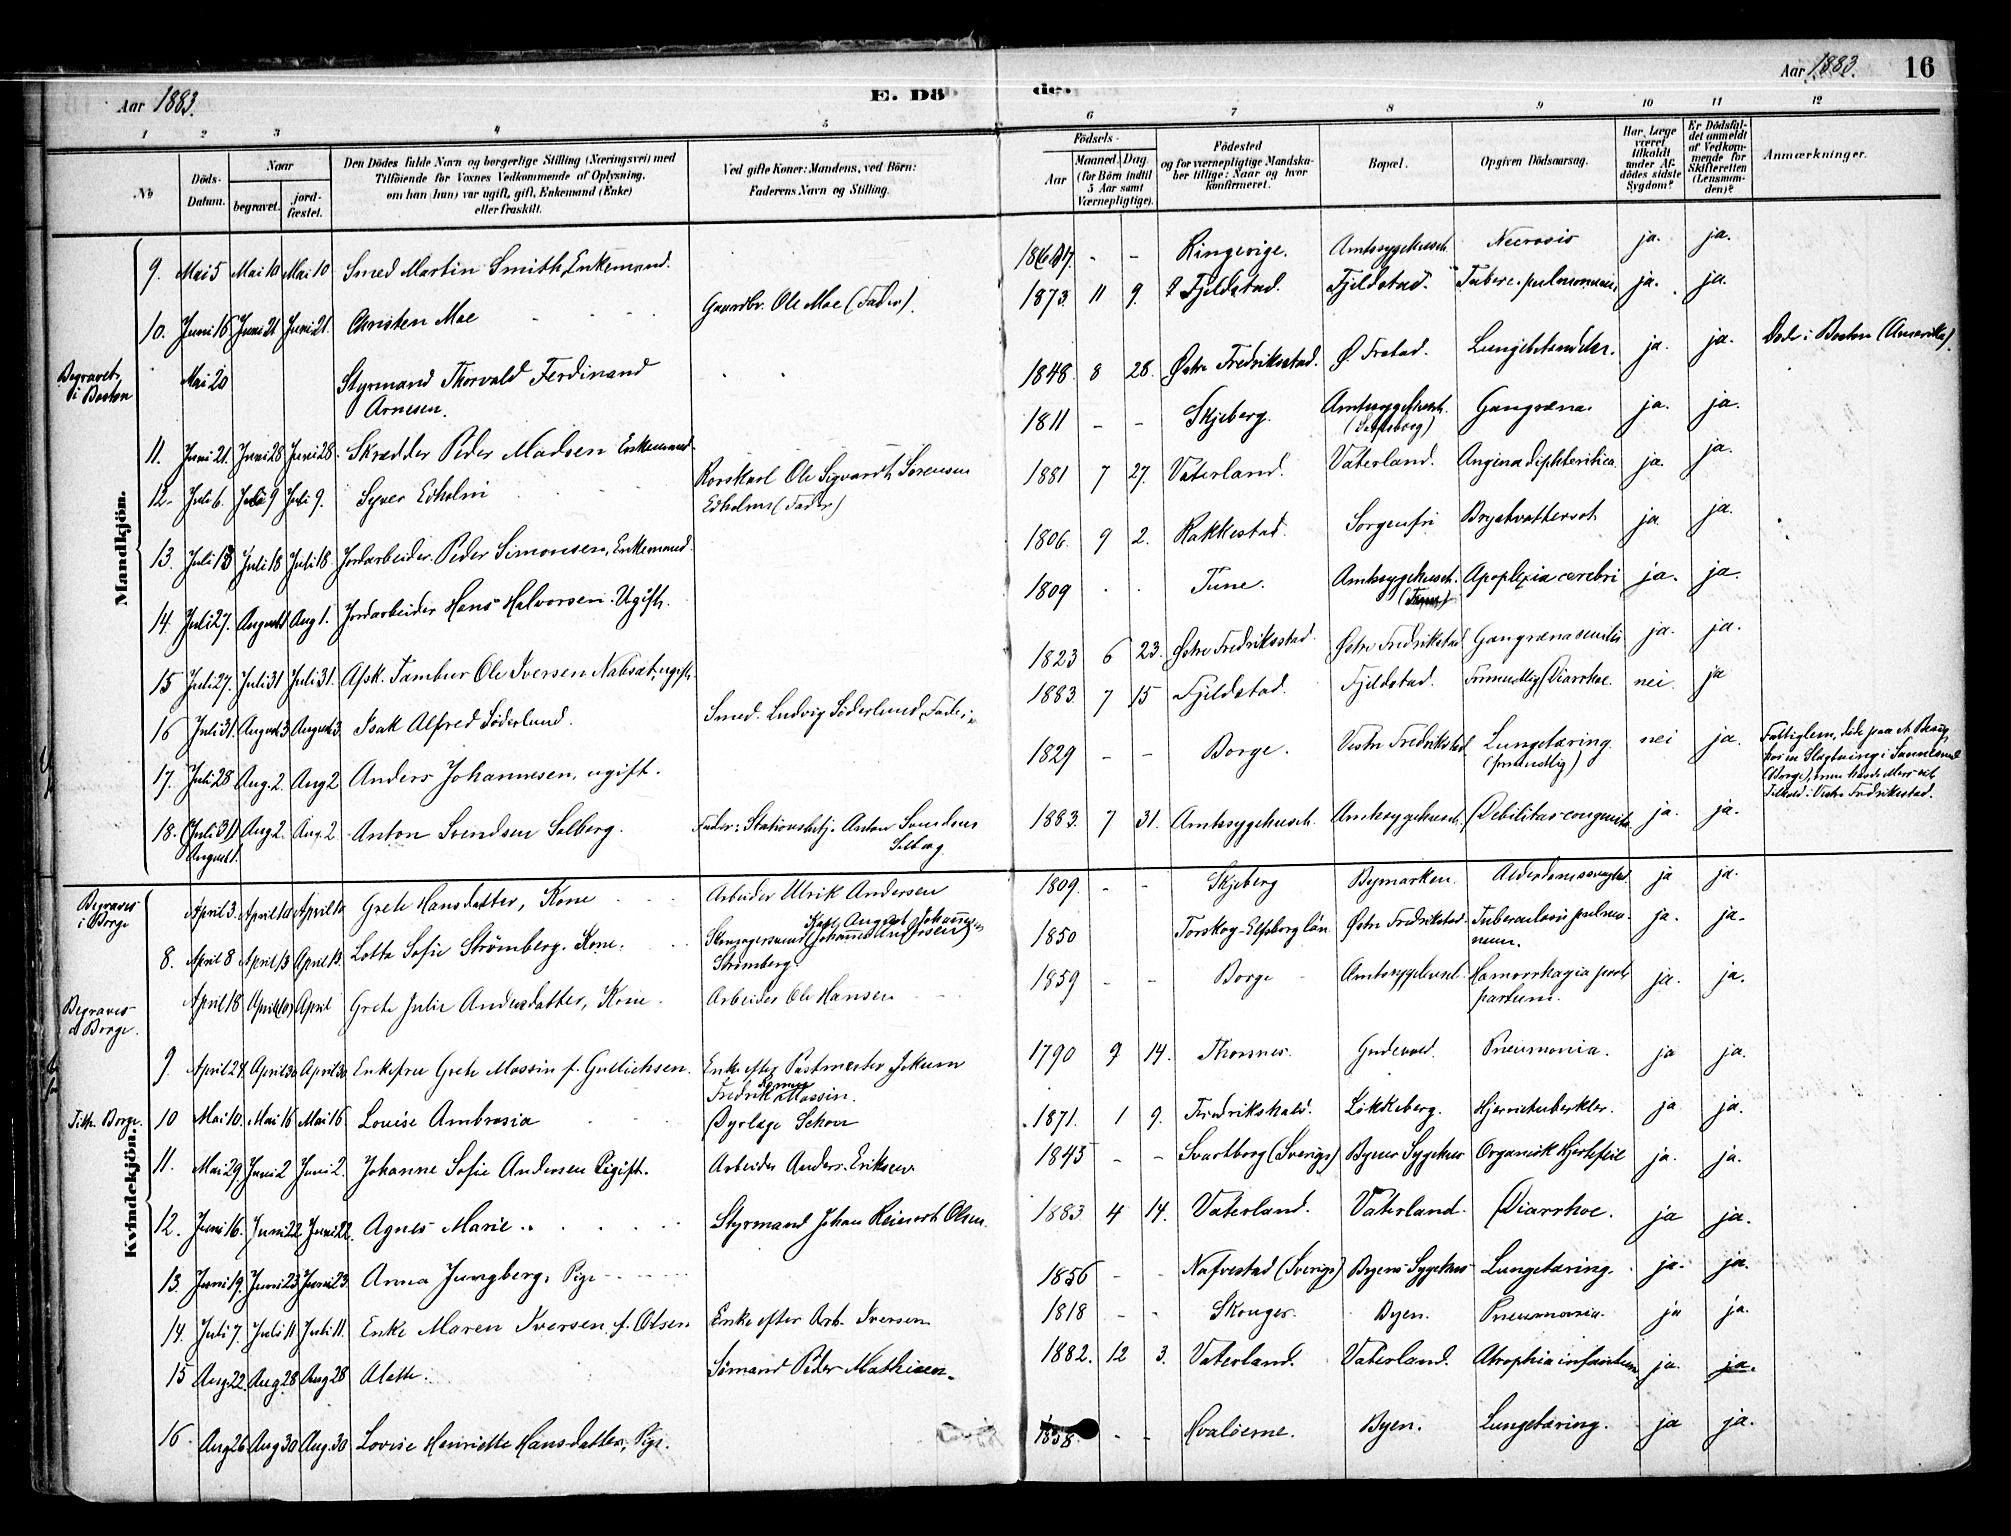 Aar 1883.
E. Dö
de.
Aar 1883. 16
1 2 3 4 5 6 7 8 9 10 11 12
No
Döds-Datum.
Naar
begravet. jord-fæstet.
Den Dödes fulde Navn og borgerlige Stilling (Næringsvei) med
Tilföiende for Voxnes Vedkommende af Oplysning,
om han (hun) var ugift, gift, Enkemand (Enke)
eller fraskilt.
Ved gifte Koner: Mandens, ved Börn:
Faderens Navn og Stilling.
Födsels-
Aar Maaned. Dag.
(for Börn indtil
5 Aar samt
Værnepligtige).
Födested
og for værnepligtige Mandska-
ber tillige: Naar og hvor
konfirmeret.
Bopæl.
Opgiven Dödsaarsag.
Har Læge
været
tilkaldt
under Af-
dödes sidste
Sygdom?
Er Dödsfal-
det anmeldt
af Vedkom-
mende for
Skifteretten
(Lensman-
den)?
Anmærkninger.
Mandkjön.
9. Mai 5 Mai 10 Mai 10 Smed Martin Smith, Enkemand. - - Ringerige. Amtssygehuset Necrosis ja. ja.
10. Juni 16 Juni 21 Juni 21. Christen Moe Gaardbr. Ole Moe (Fader). 1873 11 9. Fjeldstad. Fjeldstad. Tuberc. pulmonum ja. ja.
Begravet i Boston Mai 20 Styrmand Thorvald Ferdinand
Arnesen. 1848 8 28. Østre Fredriksstad. Ø. Frstad. Lungebetændelse. ja. ja. Døde i Boston (Amerika).
11. Juni 21. Juni 28 Juni 28. Skrædder Peder Madsen Enkemand. 1811 - - Skjeberg. Amtssygehuset.
(Sarpsborg) Gangræna. ja. ja.
12. Juli 6. Juli 9 Juli 9. Syver Edholm Korskarl Ole Sigvardt Sørensen
Edholm (Fader) 1881 7 27. Vaterland. Vaterland. Angina diphteritica. ja. ja.
13. Juli 13 Juli 18 Juli 18 Jordarbeider Peder Simonsen, Enkemand. 1806. 9 2. Rakkestad. Sorgenfri Brystvattersot. ja. ja.
14. Juli 27. August 1 Aug 1. Jordarbeider Hans Halvorsen. Ugift. 1809 Tune. Amtssygehuset.
(Tune) Apoplexia cerebri ja. ja.
15 Juli 27. Juli 31 Juli 31. Afsk. Tambur Ole Iversen Nabsæt, ugift. 1823 6 23. Østre Fredriksstad. Østre Fredrikstad. Gangræna senilis ja. ja.
16 Juli 31. August 3 August 3. Isak Alfred Söderlund. Smed. Ludvig Söderlund, Fader. 1883. 7 15 Fjeldstad. Fjeldstad. Formodtlig Diarrhoe. nei. ja
17. Juli 28 Aug. 2. Aug 2 Anders Johannesen, ugift. 1829 - - Borge. Vestre Fredrikstad Lungetæring.
(formodtlig) nei ja. Fattiglem, døde paa et Besøg
hos en Slægtning i
(Borge), men havde ellers sit
Tilhold i Vestre Fredrikstad.
18. (Juli 31)
August 1. Aug 2. Aug. 2 Anton Svendsen Solberg. Fader: Stationsbetj. Anton Svendsen
Solberg 1883. 7 31. Amtssygehuset. Amtssygehuset. Debilitas congenita. ja. ja.
Kvindekjön.
Begraves
i Borge April 3. April 10 April 10 Grete Hansdatter, Kone Arbeider Ulrik Andersen 1809. - - Skjeberg Bymarken. Alderdomssvaghed. ja ja.
8. April 8 April 13 April 13. Lotta Sofie Strømberg. Kone. Skomagersvend
Strømberg. 1850 Torskog-Elfsborg län Østre Fredrikstad Tuberculosis pulmo-
num. ja. ja.
Begraves
i Borge. April 18 April April Grete Julie Andersdatter, Kone. Arbeider Ole Hansen 1859 - - Borge Amtssygehuset. Hæmorrhagia post
partum. ja. ja.
9. April 24. April 30 April 30 Enkefru Grete Massin f. Gullichsen. Enke efter Postmester Jokum
Fredrik Massin. 1790 9 14. Thorsnes. Gudeood. Pneumonia. ja ja.
Tilh. Borge. 10 Mai 10. Mai 16 Mai 16 Louise Ambrosia Dyrlæge Schou 1871. 1 9. Fredrikshald. Lökkeberg. Hjernetuberkler. ja ja.
11. Mai 29. Juni 2 Juni 2. Johanne Sofie Andersen Ugift. Arbeider Anders Eriksen. 1845 - - Svartborg (Sverige) Byens Sygehus Organisk Hjertefeil ja. ja.
12. Juni 16. Juni 22 Juni 22. Agnes Marie Styrmand Johan Reinert Olsen. 1883 4 14. Vaterland. Vaterland. Diarrhoe. ja ja.
13. Juni 19. Juni 23 Juni 23. Anna Jungberg, Pige 1856 - - Nafvestad (Sverige) Byens Sygehus Lungetæring. ja. ja.
14. Juli 7. Juli 11 Juli 11. Enke Maren Iversen f. Olsen Enke efter Arb. Iversen 1818 - - Skouger. Byen. Pneumonia. ja ja.
15 Aug. 22. Aug 28 Aug 28 Alette. Sömand Peder Mathisen. 1882. 12 3. Vaterland. Vaterland. Atrophia infantum ja. ja.
16. Aug 26 Aug 30 Aug. 30 Lovise Henriette Hansdatter, Pige. 1858. - - Hvalöerne. Byen. Lungetæring. ja ja.